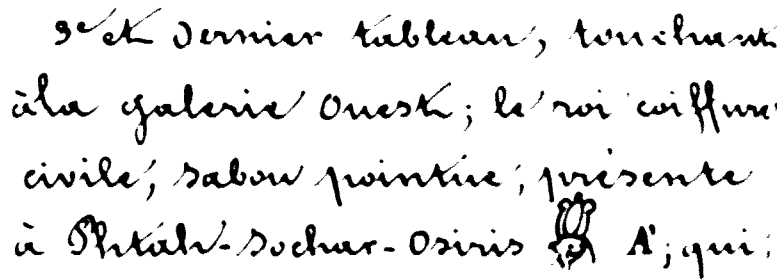 3e et dernier tableau, touchant
à la galerie Ouest; le roi coiffure
civile, sabou pointue, présente
à Phtah-Sochar-Osiris A'; qui